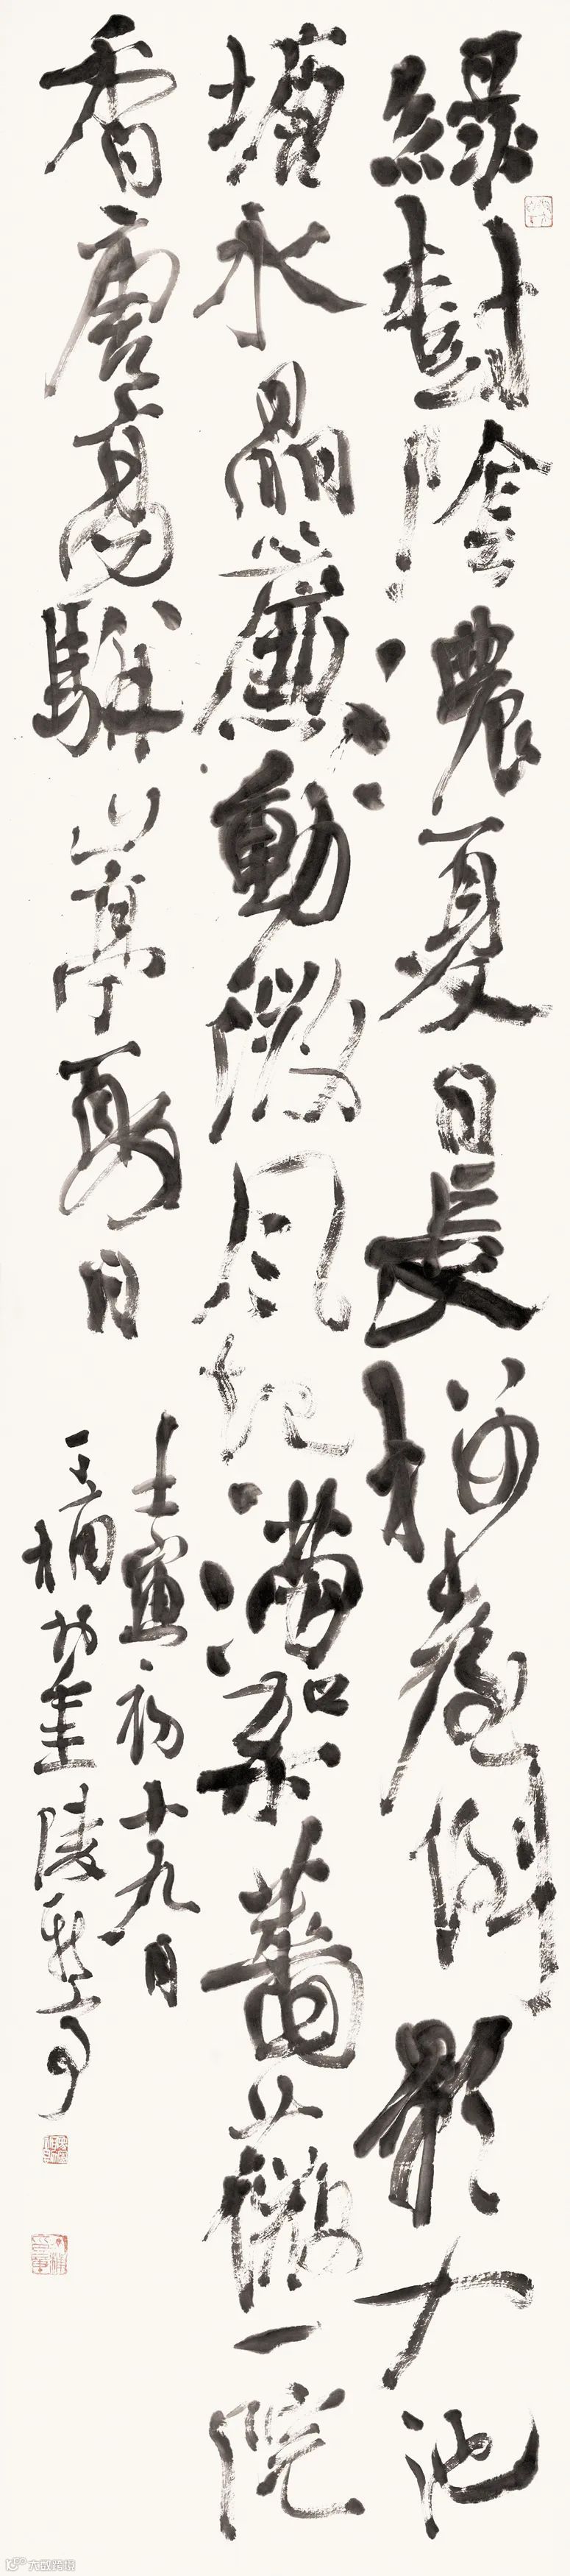 綠樹陰濃夏日長樓臺倒影入池
塘水晶簾動微風起滿架薔薇一院
香唐高駢山亭夏日
壬寅初十九日